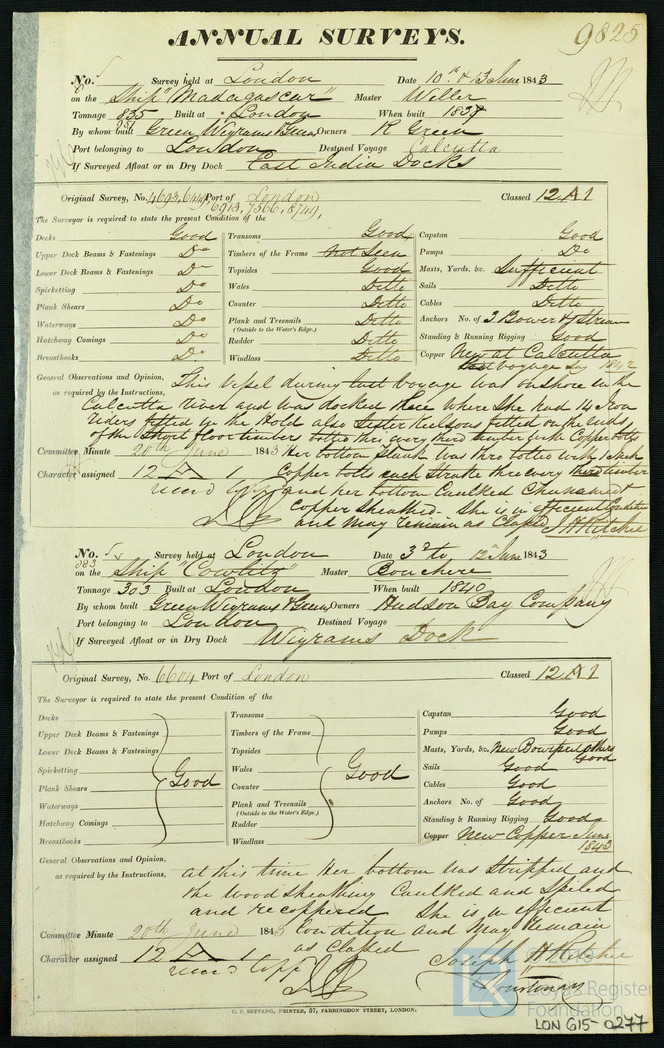 9825
ANNUAL SURVEYS.
No. Survey held at London Date 10th & 13 June 1843
on the Ship "Madagascar" Master Weller
Tonnage 835 Built at London When built 1837
951
By whom built Green, Wigrams & Green, Owners R Green
Port belonging to London Destined Voyage Calcutta
If Surveyed Afloat or in Dry Dock East India Docks
Original Survey, No. 4693, 6449, Port of London Classed 12 A 1
6913, 7566, 8749,
The Surveyor is required to state the present Condition of the
Decks Good Transoms Good Capstan Good
Upper Deck Beams & Fastenings Do Timbers of the Frame Not Seen Pumps Do
Lower Deck Beams & Fastenings Do Topsides Good Masts, Yards, &c. Sufficient
Spirketting Do Wales Ditto Sails Ditto
Plank Shears Do Counter Ditto Cables Ditto
Waterways Do Plank and Treenails Ditto Anchors No. of 3 Bower & Stream
(Outside to the Water's Edge.)
Hatchway Comings Do Rudder Ditto Standing & Running Rigging Good
Breasthooks Do Windlass Ditto Copper New at Calcutta
last voyage 1842
General Observations and Opinion, This Vessel during last voyage was on shore in the
as required by the Instructions, Calcutta River and was docked there where She had 14 Iron
Riders fitted in the Hold also Sister Keelsons fitted on the ends
of the Short floor timbers bolted thro every third timber with Copper bolts
Committee Minute 20th June 1843 Her bottom plank was thro bolted with Inch
Character assigned 12 A 1 Copper bolts each Strake thro every third timber
and her bottom Caulked Chunamed
Copper Sheathed - She is in efficient Condition
and may remain as Classed J H Ritchie
No. Survey held at London Date 3d to 12th June 1843
383
on the Ship "Cowlitz" Master Bouchere
Tonnage 303 Built at London When built 1840
By whom built Green Wigrams & Green, Owners Hudson Bay Company
Port belonging to London Destined Voyage
If Surveyed Afloat or in Dry Dock Wigrams Dock
Original Survey, No. 6604 Port of London Classed 12 A 1
The Surveyor is required to state the present Condition of the
Decks Transoms Capstan Good
Upper Deck Beams & Fastenings Timbers of the Frame Pumps Good
Lower Deck Beams & Fastenings Topsides Masts, Yards, &c. New Bowsprit others
Good
Spirketting Good Wales Good Sails Good
Plank Shears Counter Cables Good
Waterways Plank and Treenails Anchors No. of Good
(Outside to the Water's Edge.)
Hatchway Comings Rudder Standing & Running Rigging Good
Breasthooks Windlass Copper New Copper June
1843
General Observations and Opinion, at this time Her bottom was Stripped and
as required by the Instructions, the Wood Sheathing Caulked and
and recoppered She is in efficient
Committee Minute 20th June 1843 Condition and May Remain
Character assigned 12 A 1 as Classed
Joseph H Ritchie
Courtenay
C. F. SEYFANG, PRINTER, 57, FARRINGDON STREET, LONDON.
Lloyd's Register
Foundation
LON 615-0277